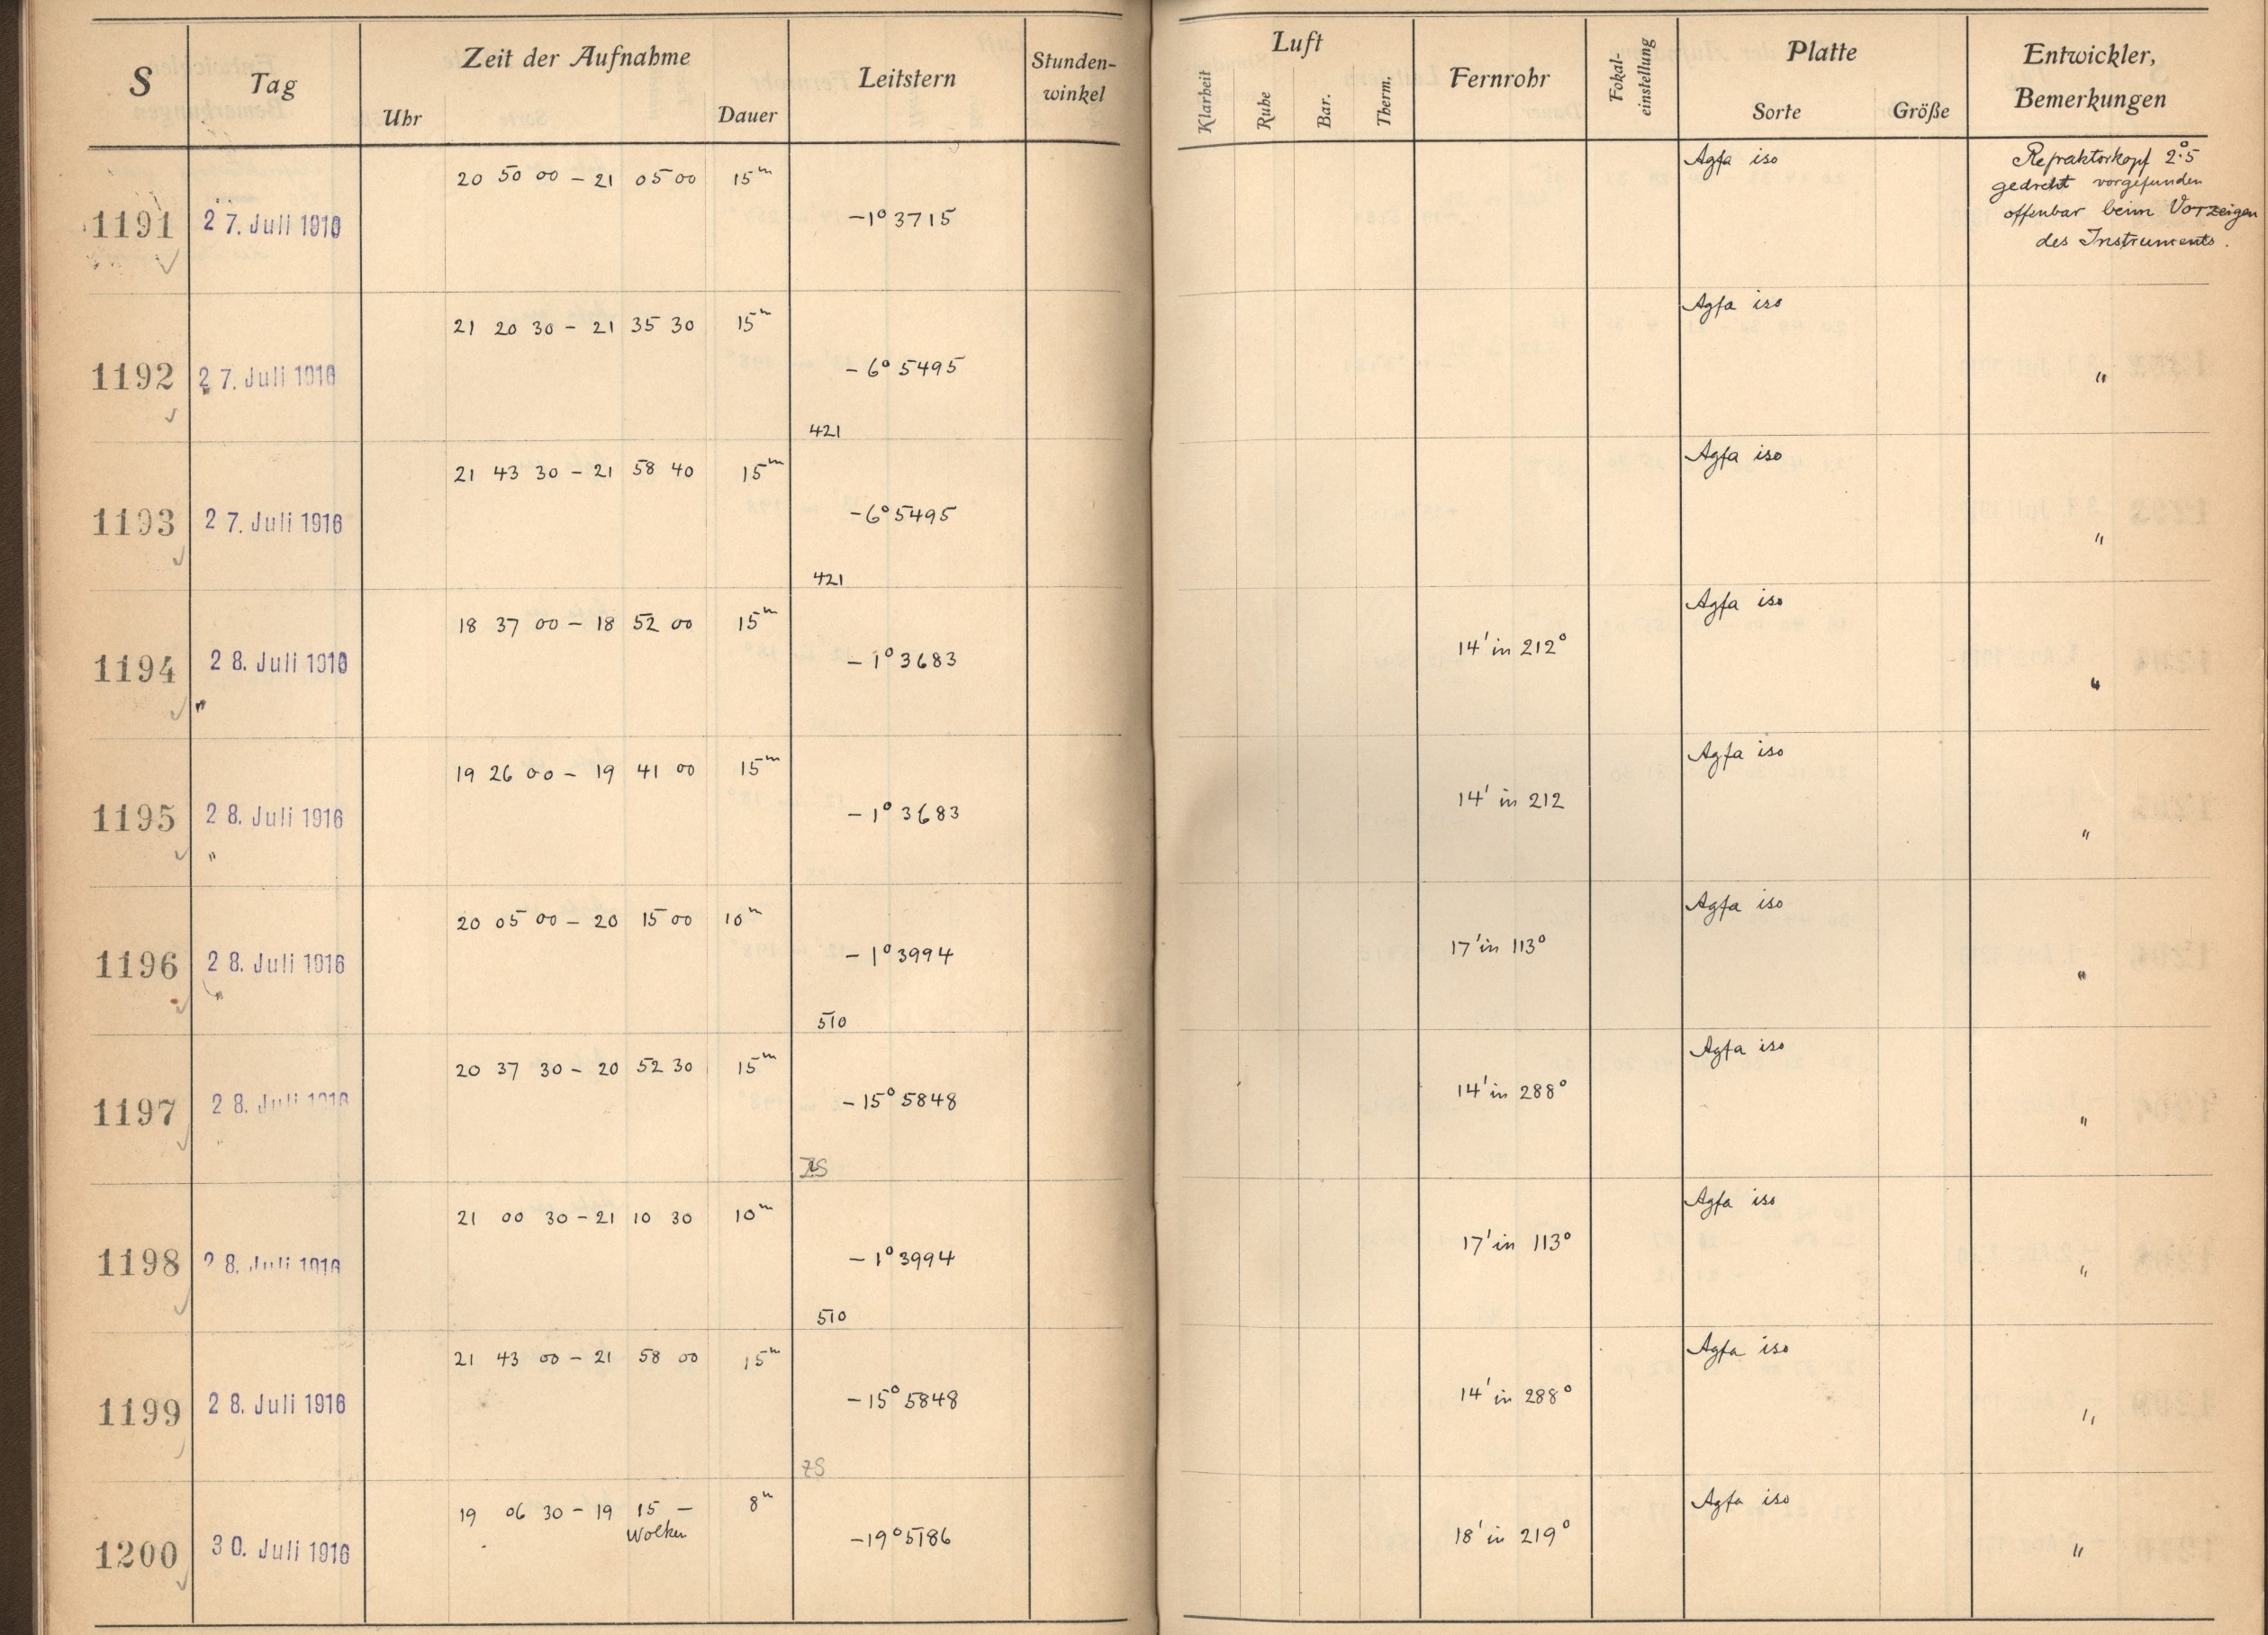 S Tag Zeit der Aufnahme Leitstern Stunden-winkel Luft Fernrohr Fokal-einstellung Platte Entwickler, Bemerkungen
Uhr Dauer Klarheit Ruhe Bar. Therm. Sorte Größe
20 50 00 – 21 05 00 15m Agfa iso Refraktorkopf 2°.5
gedreht vorgefunden
offenbar beim Vorzeigen
des Instruments.
1191 27. Juli 1916 –1° 3715
21 20 30 – 21 35 30 15m Agfa iso
1192 27. Juli 1916 –6° 5495 "
421
21 43 30 – 21 58 40 15m Agfa iso
1193 27. Juli 1916 –6° 5495 "
421
18 37 00 – 18 52 00 15m Agfa iso
1194 28. Juli 1916 –1° 3683 14' in 212° "
"
19 26 00 – 19 41 00 15m Agfa iso
1195 28. Juli 1916 –1° 3683 14' in 212 "
"
20 05 00 – 20 15 00 10m Agfa iso
1196 28. Juli 1916 –1° 3994 17' in 113° "
"
510
20 37 30 – 20 52 30 15m Agfa iso
1197 28. Juli 1916 –15° 5848 14' in 288° "
ZS
21 00 30 – 21 10 30 10m Agfa iso
1198 28. Juli 1916 –1° 3994 17' in 113° "
510
21 43 00 – 21 58 00 15m Agfa iso
1199 28. Juli 1916 –15° 5848 14' in 288° "
ZS
19 06 30 – 19 15 – 8m Agfa iso
Wolken
1200 30. Juli 1916 –19° 5186 18' in 219° "